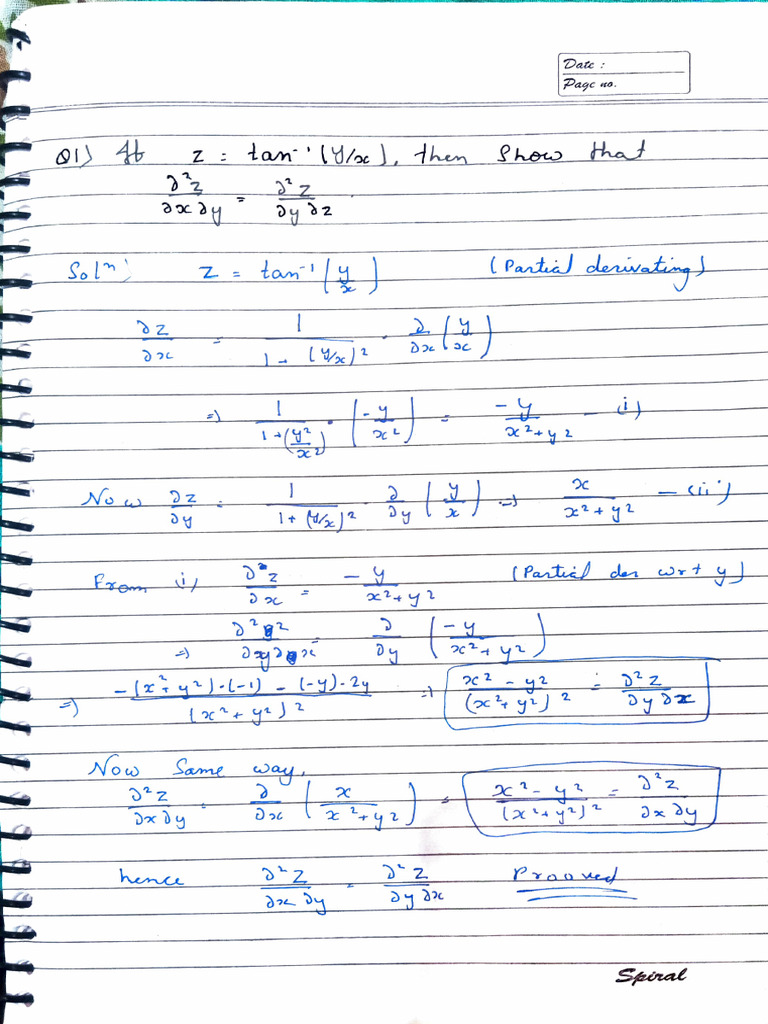 Date :
Page no.
Q1) If z = tan⁻¹ (y/x), then show that
∂²z/∂x∂y = ∂²z/∂y∂z
Solⁿ: z = tan⁻¹ (y/x) (Partial derivating)
∂z/∂x = 1/(1 + (y/x)²) · ∂/∂x (y/x)
⇒ 1/(1+(y²/x²)) · (-y/x²) = -y/(x²+y²) — (i)
Now ∂z/∂y = 1/(1+(y/x)²) · ∂/∂y (y/x) ⇒ x/(x²+y²) — (ii)
From i) ∂z/∂x = -y/(x²+y²) (Partial der wrt y)
⇒ ∂²z/∂y∂x = ∂/∂y (-y/(x²+y²))
⇒ -(x²+y²)·(-1) - (-y)·2y/(x²+y²)² ⇒ x²-y²/(x²+y²)² = ∂²z/∂y∂x
Now Same way,
∂²z/∂x∂y = ∂/∂x (x/(x²+y²)) = x²-y²/(x²+y²)² = ∂²z/∂x∂y
hence ∂²z/∂x∂y = ∂²z/∂y∂x Prooved
Spiral